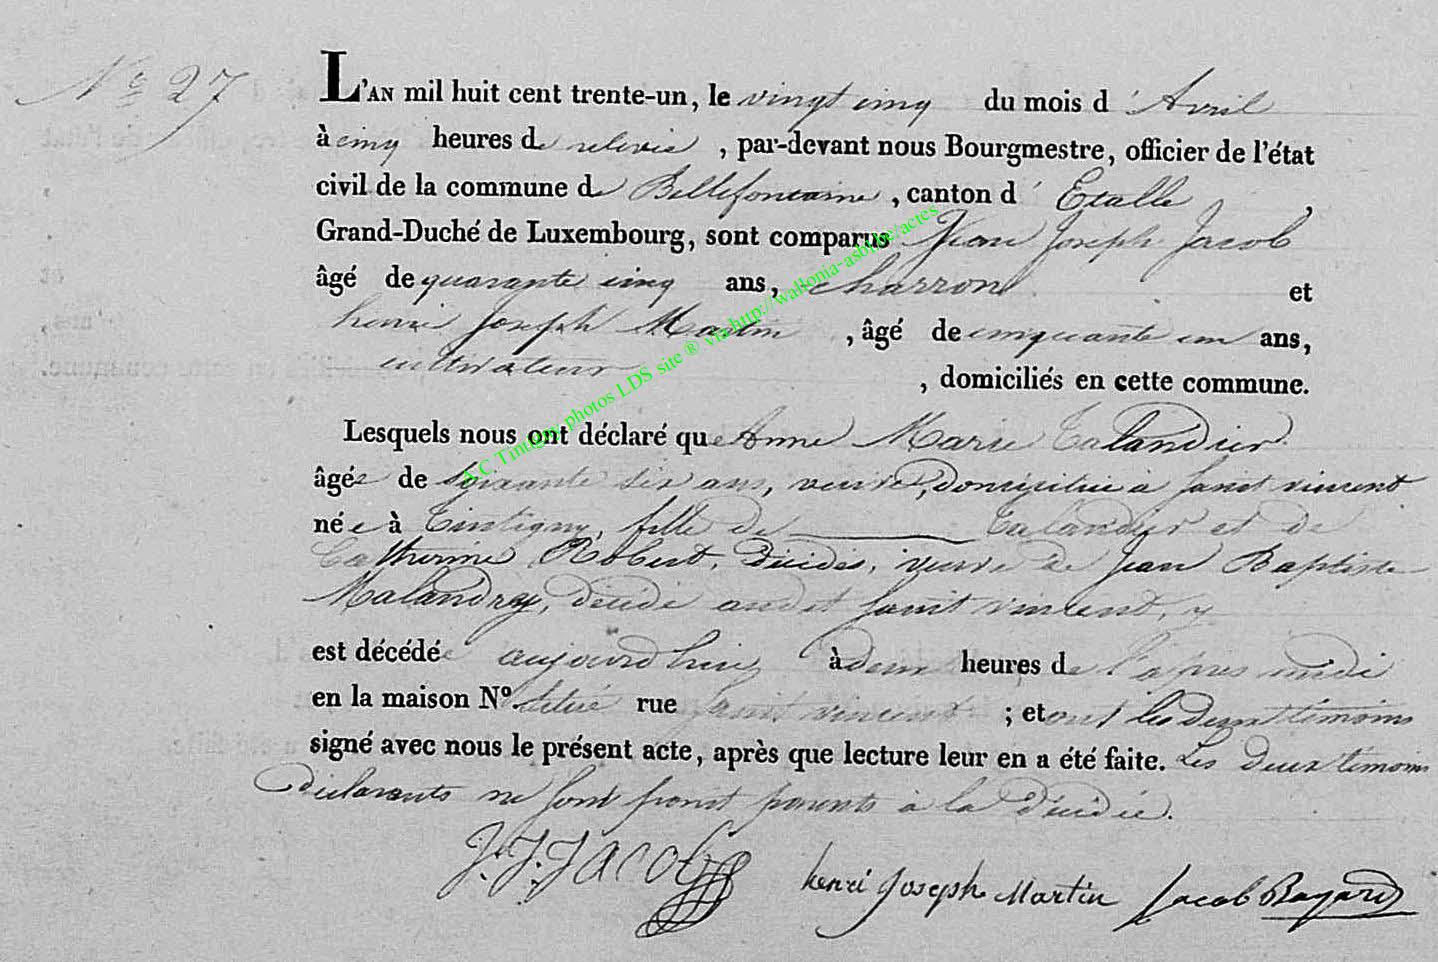 N° 27
L'AN mil huit cent trente-un, le vingt cinq du mois d'Avril
à cinq heures de relevée, par-devant nous Bourgmestre, officier de l'état
civil de la commune de Bellefontaine, canton d'Etalle,
Grand-Duché de Luxembourg, sont comparus Jean Joseph Jacob
âgé de quarante cinq ans, charron et
henri Joseph Martin, âgé de cinquante un ans,
cultivateur, domiciliés en cette commune.
Lesquels nous ont déclaré que Anne Marie Calandier
âgée de soixante dix ans, veuve, domiciliée à saint vincent
née à Tintigny, fille de Calandier et de
Catherine Robert, décédés, veuve de Jean Baptiste
Malandry, décédé audit saint vincent, y
est décédée aujourd'hui à deux heures de l'apres midi
en la maison N° située rue saint vincent; et ont les deux témoins
signé avec nous le présent acte, après que lecture leur en a été faite. Les deux témoins
déclarants ne sont point parents à la décédée.
J. J. JACOB henri Joseph Martin Jacob Bayard
A.C. Tintigny photos LDS site ® via http://wallonia-asbl.be/actes